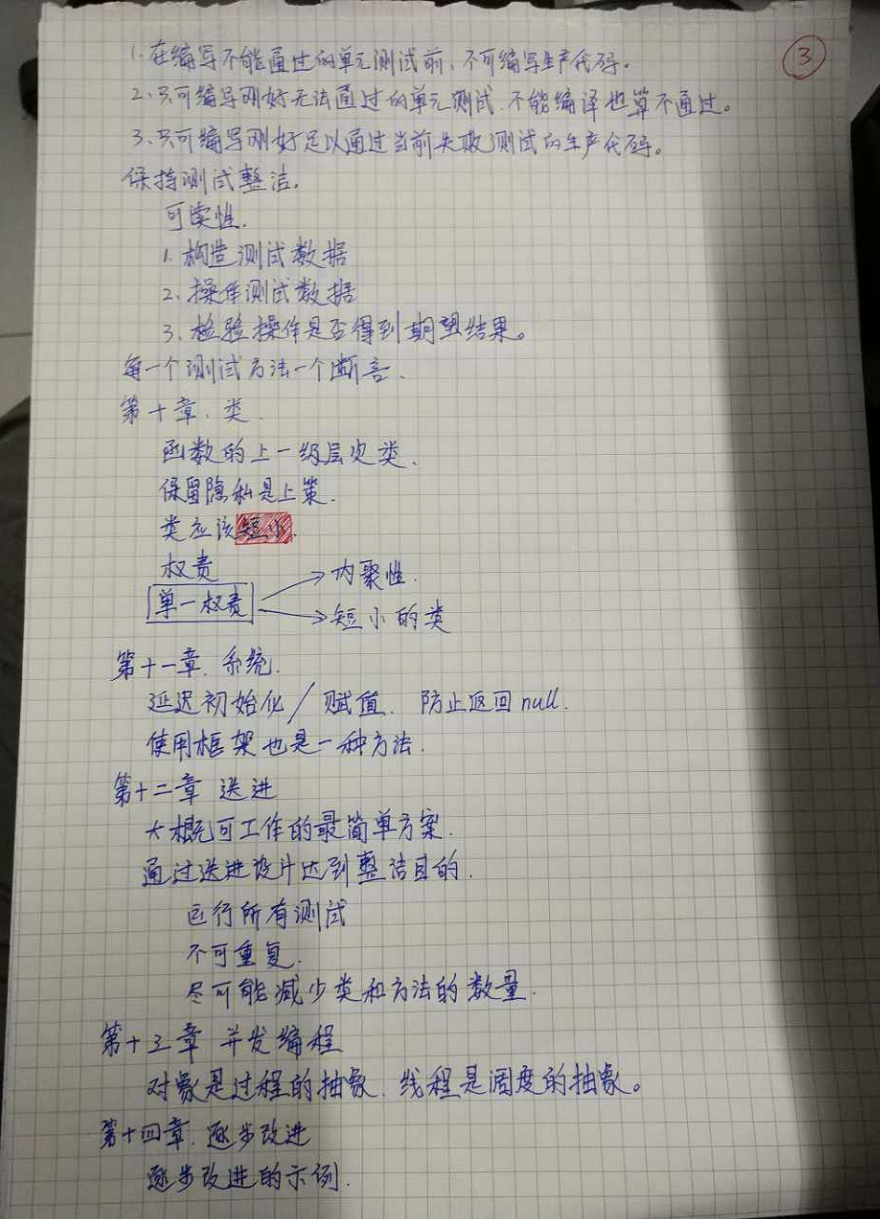 ③
1. 在编写不能通过的单元测试前,不可编写生产代码。
2、只可编写刚好无法通过的单元测试,不能编译也算不通过。
3、只可编写刚好足以通过当前失败测试的生产代码。
保持测试整洁。
可读性.
1. 构造测试数据
2、操作测试数据
3、检验操作是否得到期望结果。
每一个测试方法一个断言.
第十章.类.
函数的上一级层次类.
保留隐私是上策.
类应该短小.
权责
内聚性.
单一权责
短小的类
第十一章.系统.
延迟初始化/赋值. 防止返回null.
使用框架也是一种方法.
第十二章 迭进
大概可工作的最简单方案.
通过迭进设计达到整洁目的.
运行所有测试
不可重复.
尽可能减少类和方法的数量.
第十三章 并发编程
对象是过程的抽象.线程是调度的抽象。
第十四章.逐步改进
逐步改进的示例.